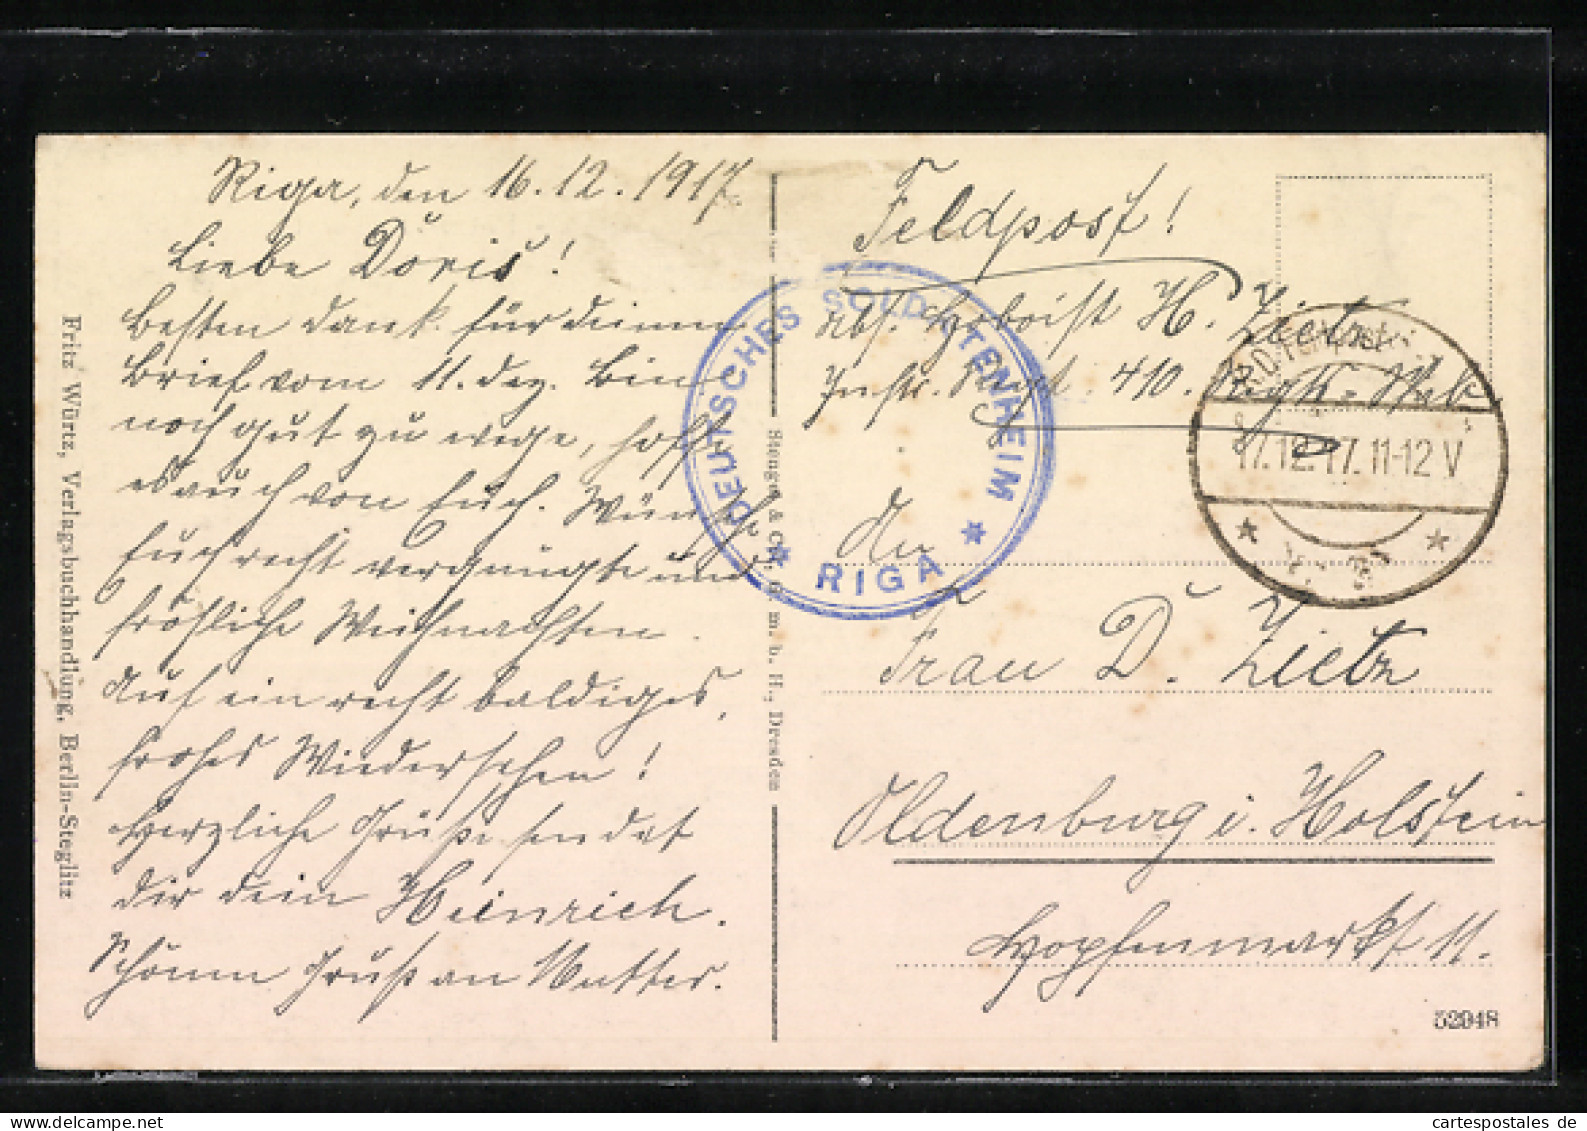 Riga, den 16.12.1917.
Liebe Doris!
Besten Dank für deinen
Brief vom 11. dez. Bin
noch gut zu wege, hoffe
es auch von Euch. Wünsche
Euch recht vergnügte und
fröhliche Weihnachten.
Auf ein recht baldiges,
frohes Wiedersehen!
Herzliche Grüße sendet
dir dein Heinrich.
Schönen Gruß an Mutter.
Fritz Würtz, Verlagsbuchhandlung, Berlin-Steglitz
Stengel & Co., G. m. b. H., Dresden
Feldpost!
Abs. Hoboist H. Zietz
Inftr. Regt. 410. Regts. Stab.
DEUTSCHES SOLDATENHEIM
* RIGA *
17.12.17. 11-12 V
An
Frau D. Zietz
Oldenburg i. Holstein
Hopfenmarkt 11.
52948
cartespostales de